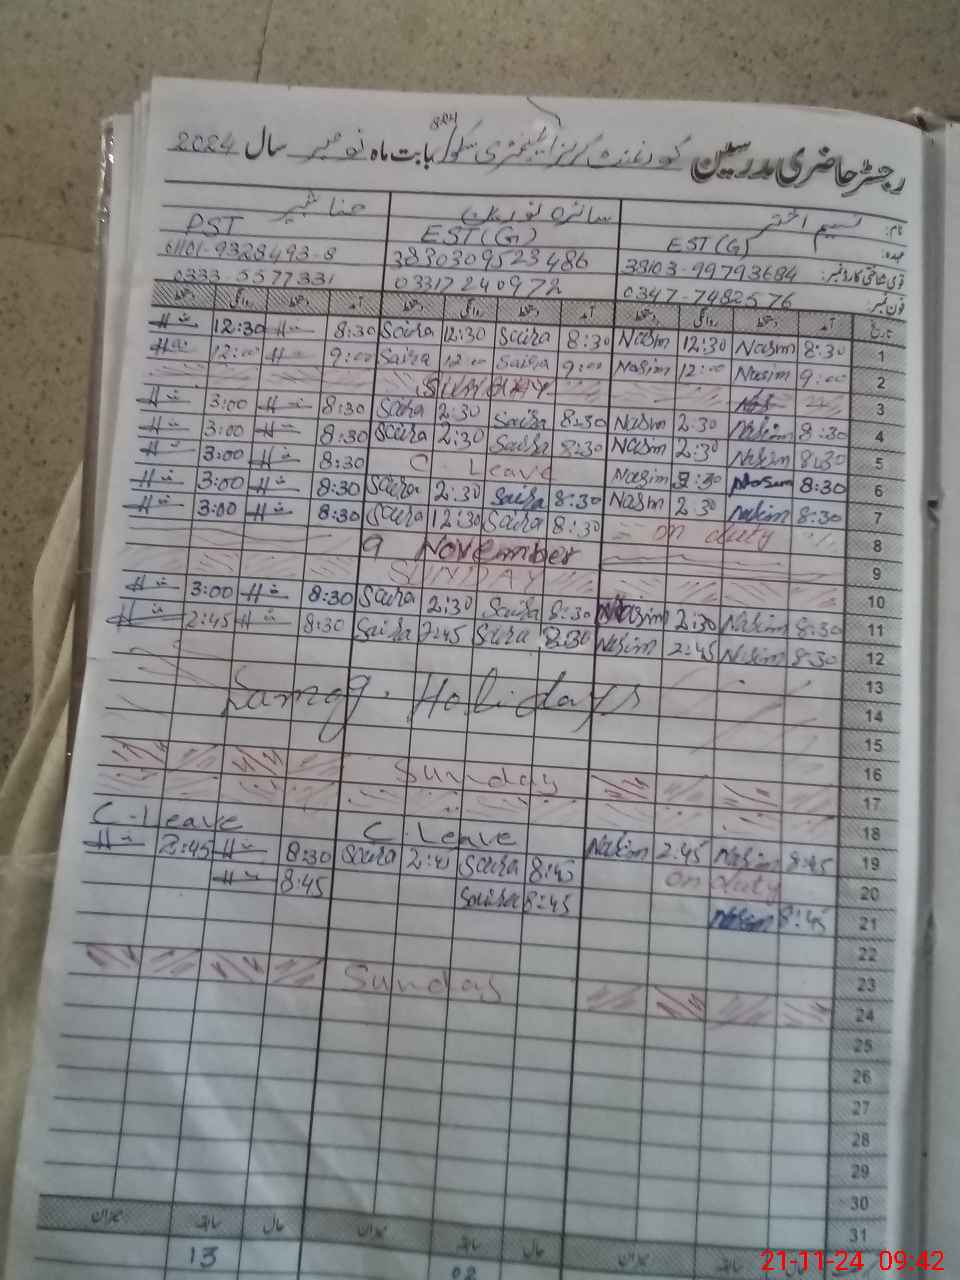 رجسٹر حاضری مدرسین گورنمنٹ گرلز ایلیمنٹری سکول بابت ماہ نومبر سال 2024
نام: نسیم اختر سائرہ نورین حنا شبیر
عہدہ: EST(G) EST(G) PST
قومی شناختی کارڈ نمبر: 38103-99793684 3830309523486 9328493-8
فون نمبر: 0347-7482576 03317240972 0333-5577331
تاریخ آمد دستخط روانگی دستخط آمد دستخط روانگی دستخط آمد دستخط روانگی دستخط
12:30 8:30 Saira 12:30 Saira 8:30 Nasim 12:30 Nasim 8:30 1
12:00 9:00 Saira 12:00 Saira 9:00 Nasim 12:00 Nasim 9:00 2
SUNDAY 3
3:00 8:30 Saira 2:30 Saira 8:30 Nasim 2:30 Nasim 8:30 4
3:00 8:30 Saira 2:30 Saira 8:30 Nasim 2:30 Nasim 8:30 5
3:00 8:30 C. Leave Nasim 2:30 Nasim 8:30 6
3:00 8:30 Saira 2:30 Saira 8:30 Nasim 2:30 Nasim 8:30 7
3:00 8:30 Saira 12:30 Saira 8:30 on duty 8
9 November 9
SUNDAY 10
3:00 8:30 Saira 2:30 Saira 8:30 Nasim 2:30 Nasim 8:30 11
2:45 8:30 Saira 2:45 Saira 8:30 Nasim 2:45 Nasim 8:30 12
13
Holidays 14
15
16
Sunday 17
C. Leave C. Leave 18
2:45 8:30 Saira Saira 8:45 Nasim 2:45 Nasim 8:45 19
8:45 on duty 20
Saira 8:45 Nasim 8:45 21
22
23
Sunday 24
25
26
27
28
29
30
31
میزان سابقہ حال میزان سابقہ حال میزان سابقہ حال
13 02
21-11-24 09:42